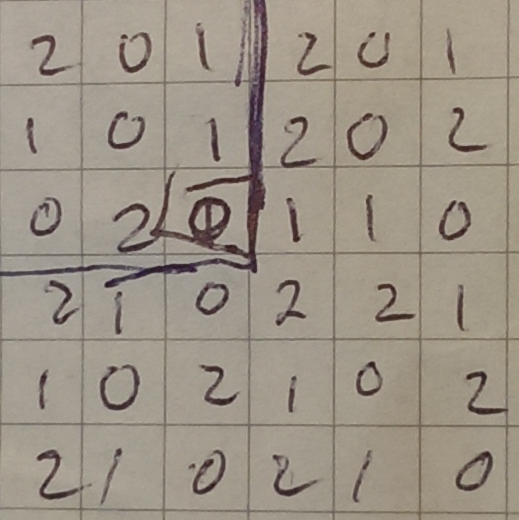 2 0 1 2 0 1
1 0 1 2 0 2
0 2 1 1 0
2 1 0 2 2 1
1 0 2 1 0 2
2 1 0 2 1 0